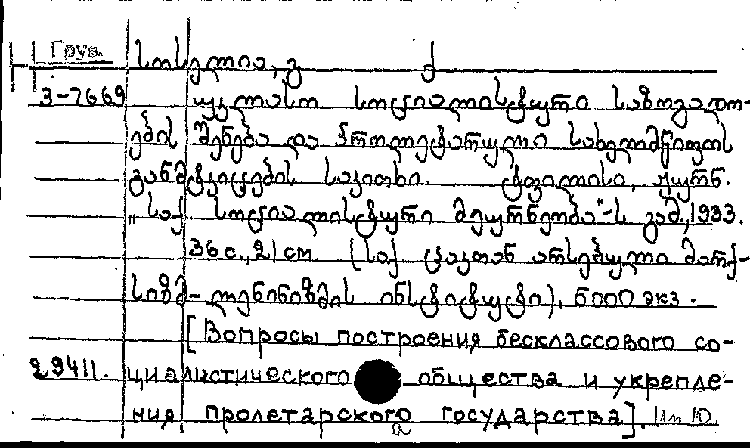 Груз.
სოსელია, გ
3-7669 უკლასო სოციალისტური საზოგადო-
ების შენება და პროლეტარული სახელმწიფოს
განმტკიცების საკითხი. ტფილისი, ჟურნ.
„საქ სოციალისტური მეურნეობა"-ს გამ., 1933.
36 с., 21 см (საქ ცაკთან არსებული მარქ-
სიზმ-ლენინიზმის ინსტიტუტი). 5000 экз.
[Вопросы построения бесклассового со-
29411. циалистического общества и укрепле-
ния пролетарского государства].